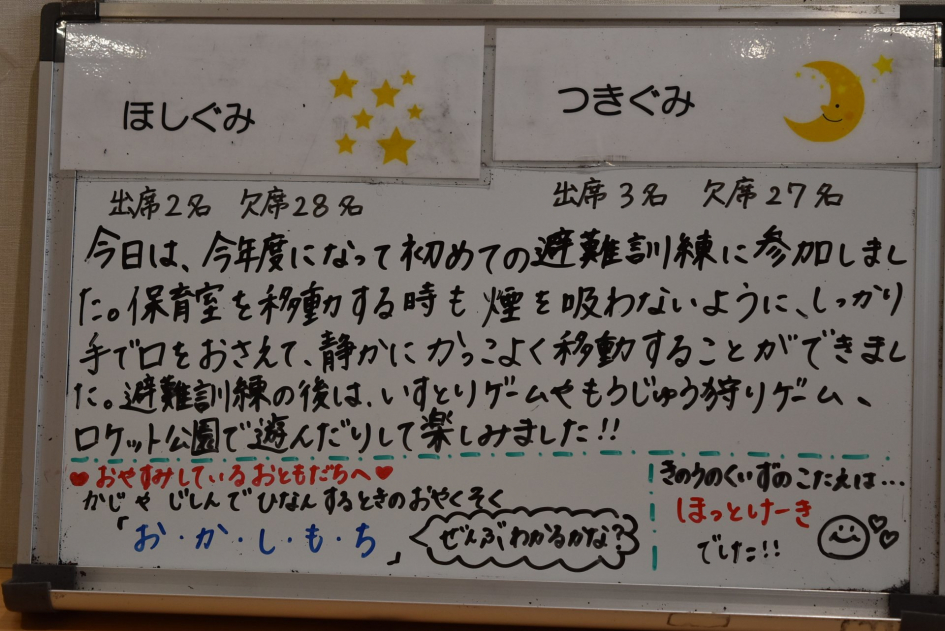 ほしぐみ
つきぐみ
出席2名 欠席28名
出席3名 欠席27名
今日は、今年度になって初めての避難訓練に参加しまし
た。保育室を移動する時も煙を吸わないように、しっかり
手で口をおさえて、静かにかっこよく移動することができまし
た。避難訓練の後は、いすとりゲームやもうじゅう狩りゲーム、
ロケット公園で遊んだりして楽しみました!!
♥おやすみしているおともだちへ♥
かじやじしんでひなんするときのおやくそく
「お・か・し・も・ち」
ぜんぶわかるかな?
きのうのくいずのこたえは…
ほっとけーき
でした!!